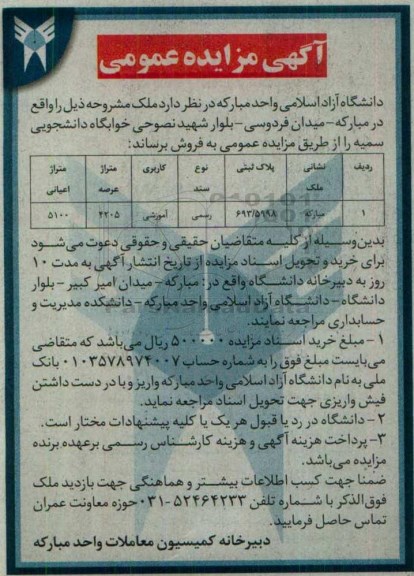 آگهی مزایده عمومی
دانشگاه آزاد اسلامی واحد مبارکه در نظر دارد ملک مشروحه ذیل را واقع
در مبارکه-میدان فردوسی-بلوار شهید نصوحی خوابگاه دانشجویی
سمیه را از طریق مزایده عمومی به فروش برساند:
ردیف نشانی ملک پلاک ثبتی نوع سند کاربری متراژ عرصه متراژ اعیانی
۱ مبارکه ۶۹۳/۵۹۹۸ رسمی آموزشی ۲۲۰۵ ۵۱۰۰
بدین وسیله از کلیه متقاضیان حقیقی و حقوقی دعوت می شود
برای خرید و تحویل اسناد مزایده از تاریخ انتشار آگهی به مدت ۱۰
روز به دبیرخانه دانشگاه واقع در: مبارکه-میدان امیر کبیر-بلوار
دانشگاه-دانشگاه آزاد اسلامی واحد مبارکه-دانشکده مدیریت و
حسابداری مراجعه نمایند.
۱-مبلغ خرید اسناد مزایده ۵۰۰۰۰۰ ریال می باشد که متقاضی
می بایست مبلغ فوق را به شماره حساب ۰۱۰۳۵۷۸۹۷۴۰۰۷ بانک
ملی به نام دانشگاه آزاد اسلامی واحد مبارکه واریز و با در دست داشتن
فیش واریزی جهت تحویل اسناد مراجعه نماید.
۲-دانشگاه در رد یا قبول هر یک یا کلیه پیشنهادات مختار است.
۳-پرداخت هزینه آگهی و هزینه کارشناس رسمی بر عهده برنده
مزایده می باشد.
ضمنا جهت کسب اطلاعات بیشتر و هماهنگی جهت بازدید ملک
فوق الذکر با شماره تلفن ۵۲۴۶۴۲۳۳-۰۳۱ حوزه معاونت عمران
تماس حاصل فرمایید.
دبیرخانه کمیسیون معاملات واحد مبارکه